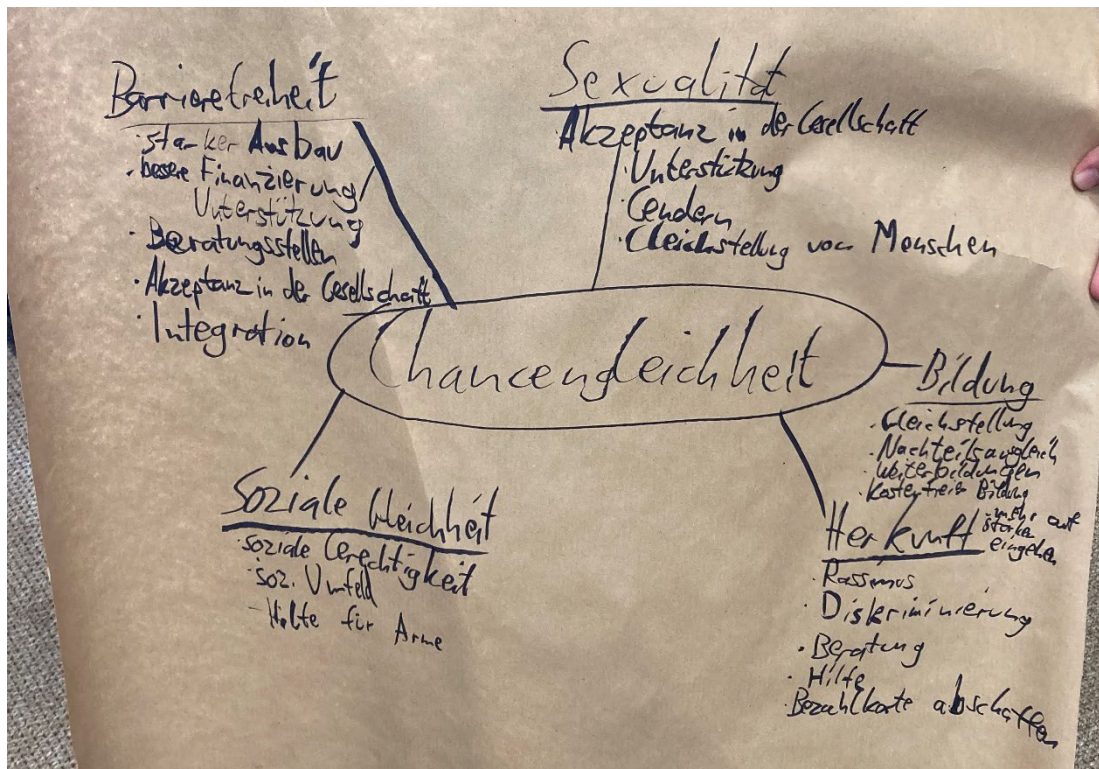 Barrierefreiheit
· starker Ausbau
· besere Finanzierung
Unterstützung
· Beratungsstellen
· Akzeptanz in der Gesellschaft
· Integration
Sexualität
Akzeptanz in der Gesellschaft
· Unterstützung
· Gendern
· Gleichstellung von Menschen
Chancengleichheit
Bildung
· Gleichstellung
· Nachteilsausgleich
· Weiterbildungen
· Kostenfreie Bildung
- mehr auf
stärken
eingehen
Soziale Gleichheit
· soziale Gerechtigkeit
· soz. Umfeld
- Hilfe für Arme
Herkunft
· Rassimus
· Diskriminierung
· Beratung
· Hilfe
· Bezahlkarte abschaffen